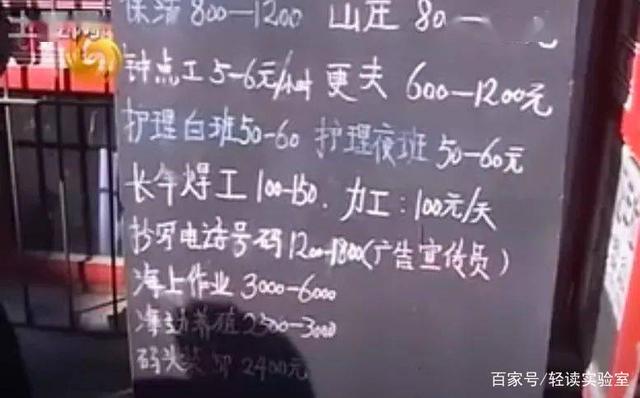 保洁 800—1200 山庄 80
钟点工 5-6元/小时 更夫 600—1200元
护理白班50-60 护理夜班 50-60元
长年焊工 100-150. 力工:100元/天
抄写电话号码1200-1800(广告宣传员)
海上作业 3000-6000
养殖 2500-3000
码头装卸 2400元
百家号/轻读实验室